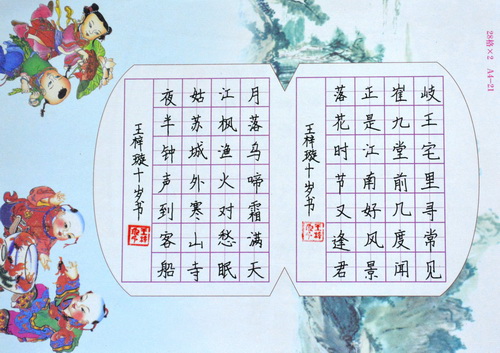 岐王宅里寻常见
崔九堂前几度闻
正是江南好风景
落花时节又逢君
王梓璇十岁书
月落乌啼霜满天
江枫渔火对愁眠
姑苏城外寒山寺
夜半钟声到客船
王梓璇十岁书
28格×2 A4-21